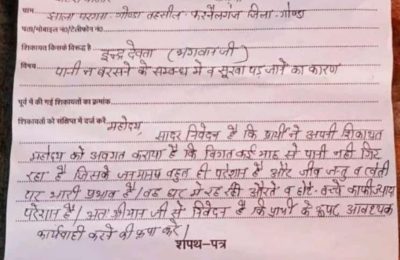 ग्राम झाला परगना- गोण्डा तहसील- करनैलगंज जिला- गोण्डा
पता/मोबाइल नं0/टेलीफोन नं0
शिकायत किसके विरूद्ध है इन्द्र देवता (भगवान जी)
विषय पानी न बरसने के सम्बन्ध में व सूखा पड़ जाने का कारण
पूर्व में की गई शिकायतों का क्रमांक
शिकायतों को संक्षिप्त में दर्ज करें महोदय,
सादर निवेदन है कि प्रार्थी ने अपनी शिकायत
महोदय को अवगत कराया है कि विगत कई माह से पानी नही गिर
रहा है जिसके जनमानस बहुत ही परेशान है और जीव जन्तु व खेती
पर भारी प्रभाव है। वह घर में रह रही औरते व छोटे-बच्चे काफी ज्यादा
परेशान है। अतः श्रीमान जी से निवेदन है कि प्रार्थी के ऊपर आवश्यक
कार्यवाही करने की कृपा करें।
शपथ-पत्र